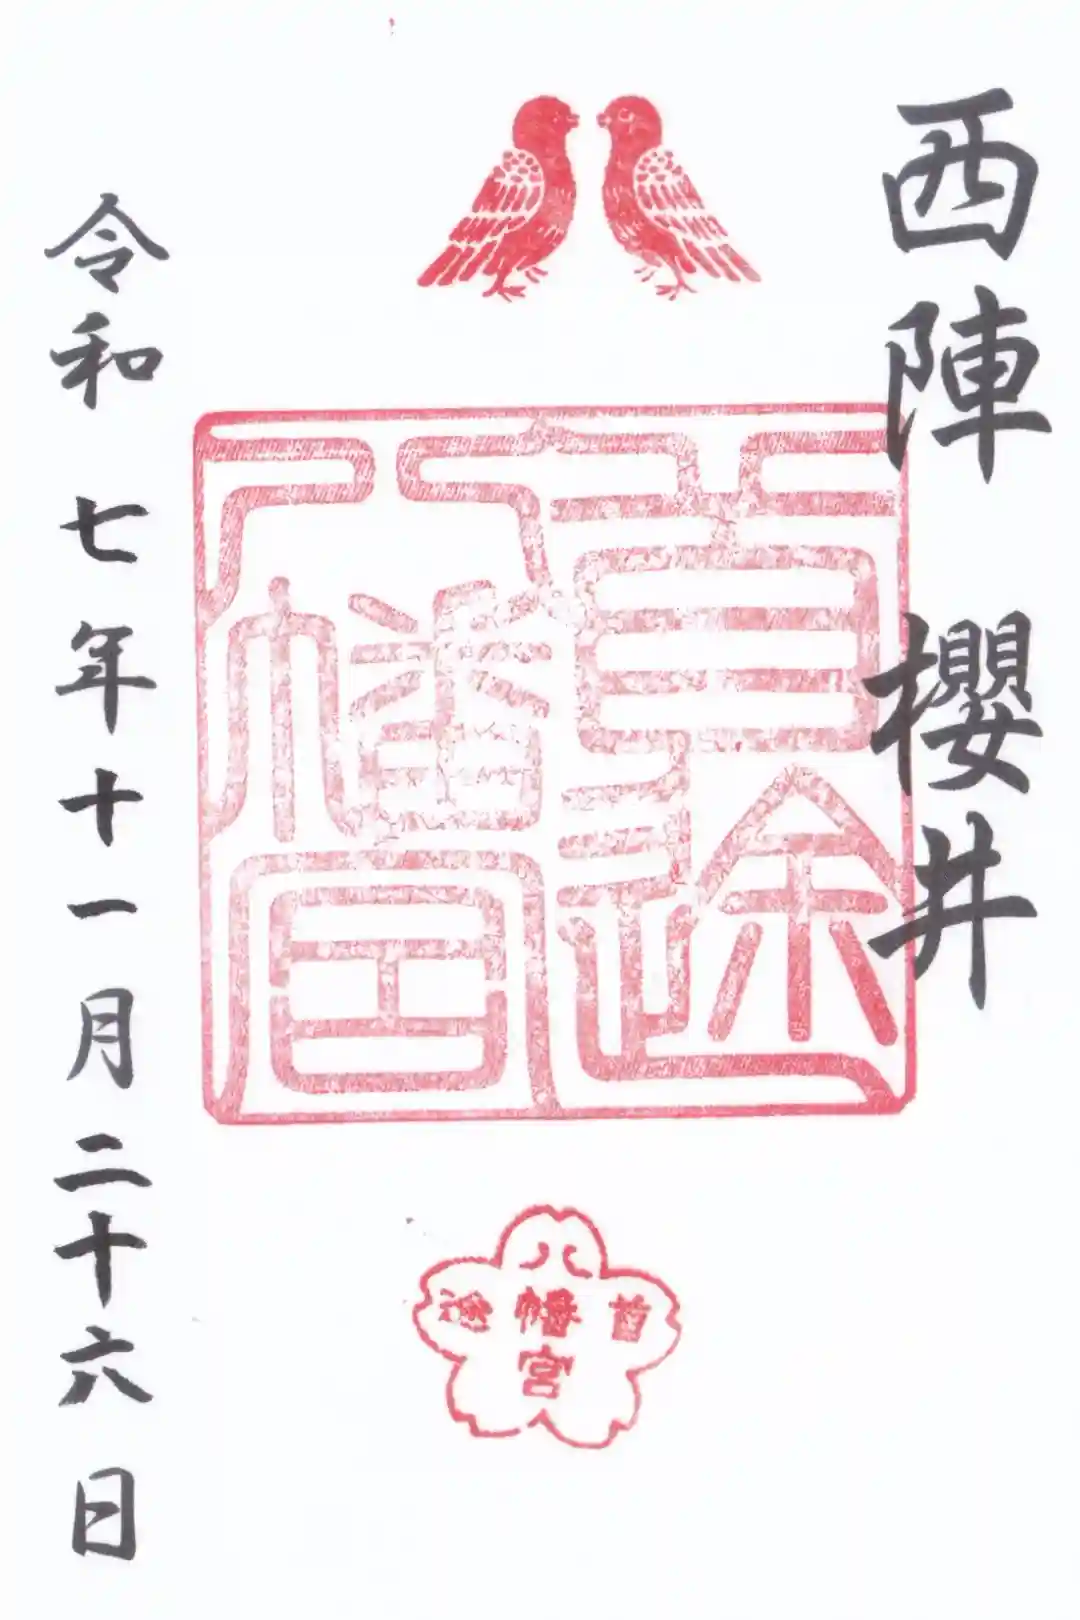 西陣 櫻井
首途八幡宮
八幡宮
首途
令和七年十一月二十六日